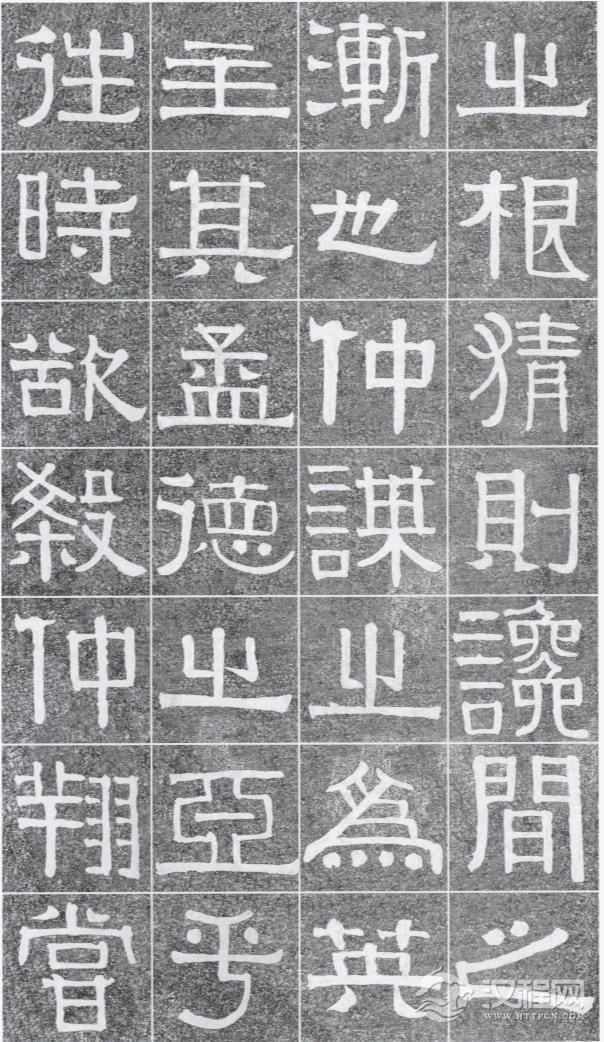 之根猜則讒間之
漸也仲謀之為英
主其孟德之亞乎
往時欲殺仲翔嘗
汉程网
WWW.HTTPCN.COM